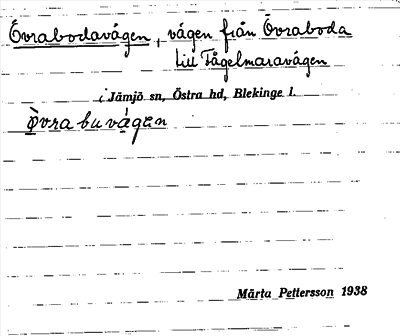 Övrabodavägen, vägen från Övraboda
till Fågelmaravägen
i Jämjö sn, Östra hd, Blekinge l.
Òvrabuvá̤gen
Märta Pettersson 1938